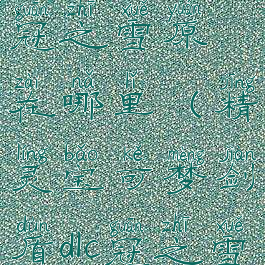 guān zhī xuě yuán
冠之雪原
zài nǎ lǐ jīng
在哪里(精
líng bǎo kě mèng jiàn
灵宝可梦剑
dùn guān zhī xuě
盾dlc冠之雪